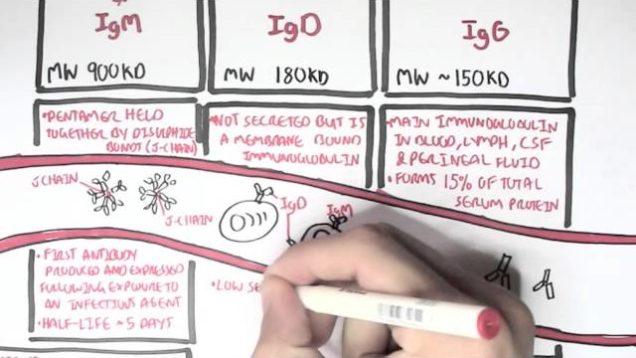 IgM
MW 900KD
IgD
MW 180KD
IgG
MW ~150KD
•PENTAMER HELD
TOGETHER BY DISULPHIDE
BOND (J-CHAIN)
•NOT SECRETED BUT IS
A MEMBRANE BOUND
IMMUNOGLOBULIN
•MAIN IMMUNOGLOBULIN
IN BLOOD, LYMPH, CSF
& PERINEAL FLUID
•FORMS 15% OF TOTAL
SERUM PROTEIN
J CHAIN
J-CHAIN
IgD
IgM
•FIRST ANTIBODY
PRODUCED AND EXPRESSED
FOLLOWING EXPOSURE TO
AN INFECTIOUS AGENT
•HALF-LIFE ~5 DAYS
•LOW SE